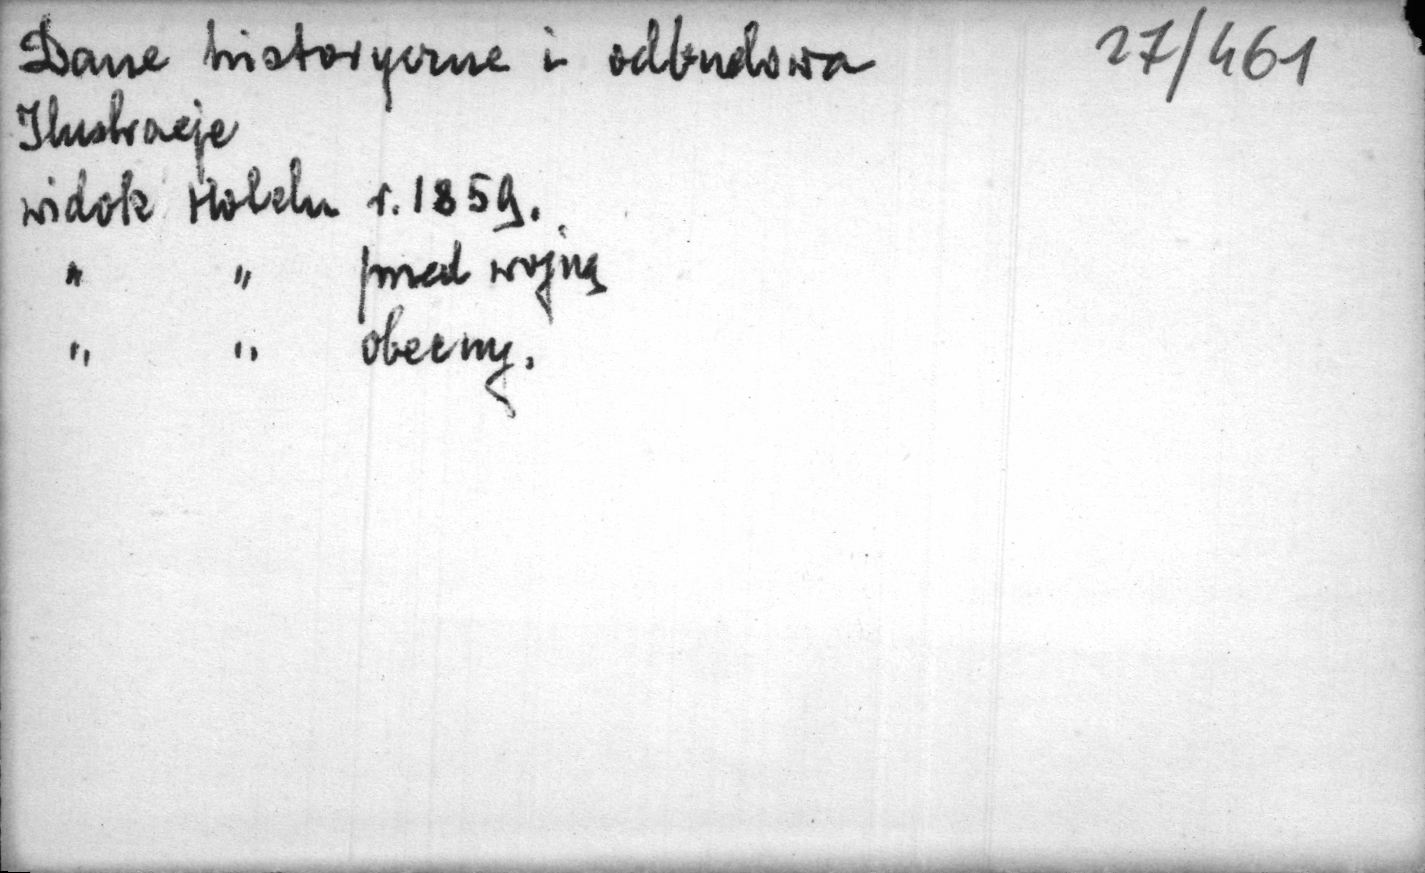 Dane historyczne i odbudowa 27/461
Ilustracje
widok Hotelu r. 1859.
" " przed wojną
" " obecny.